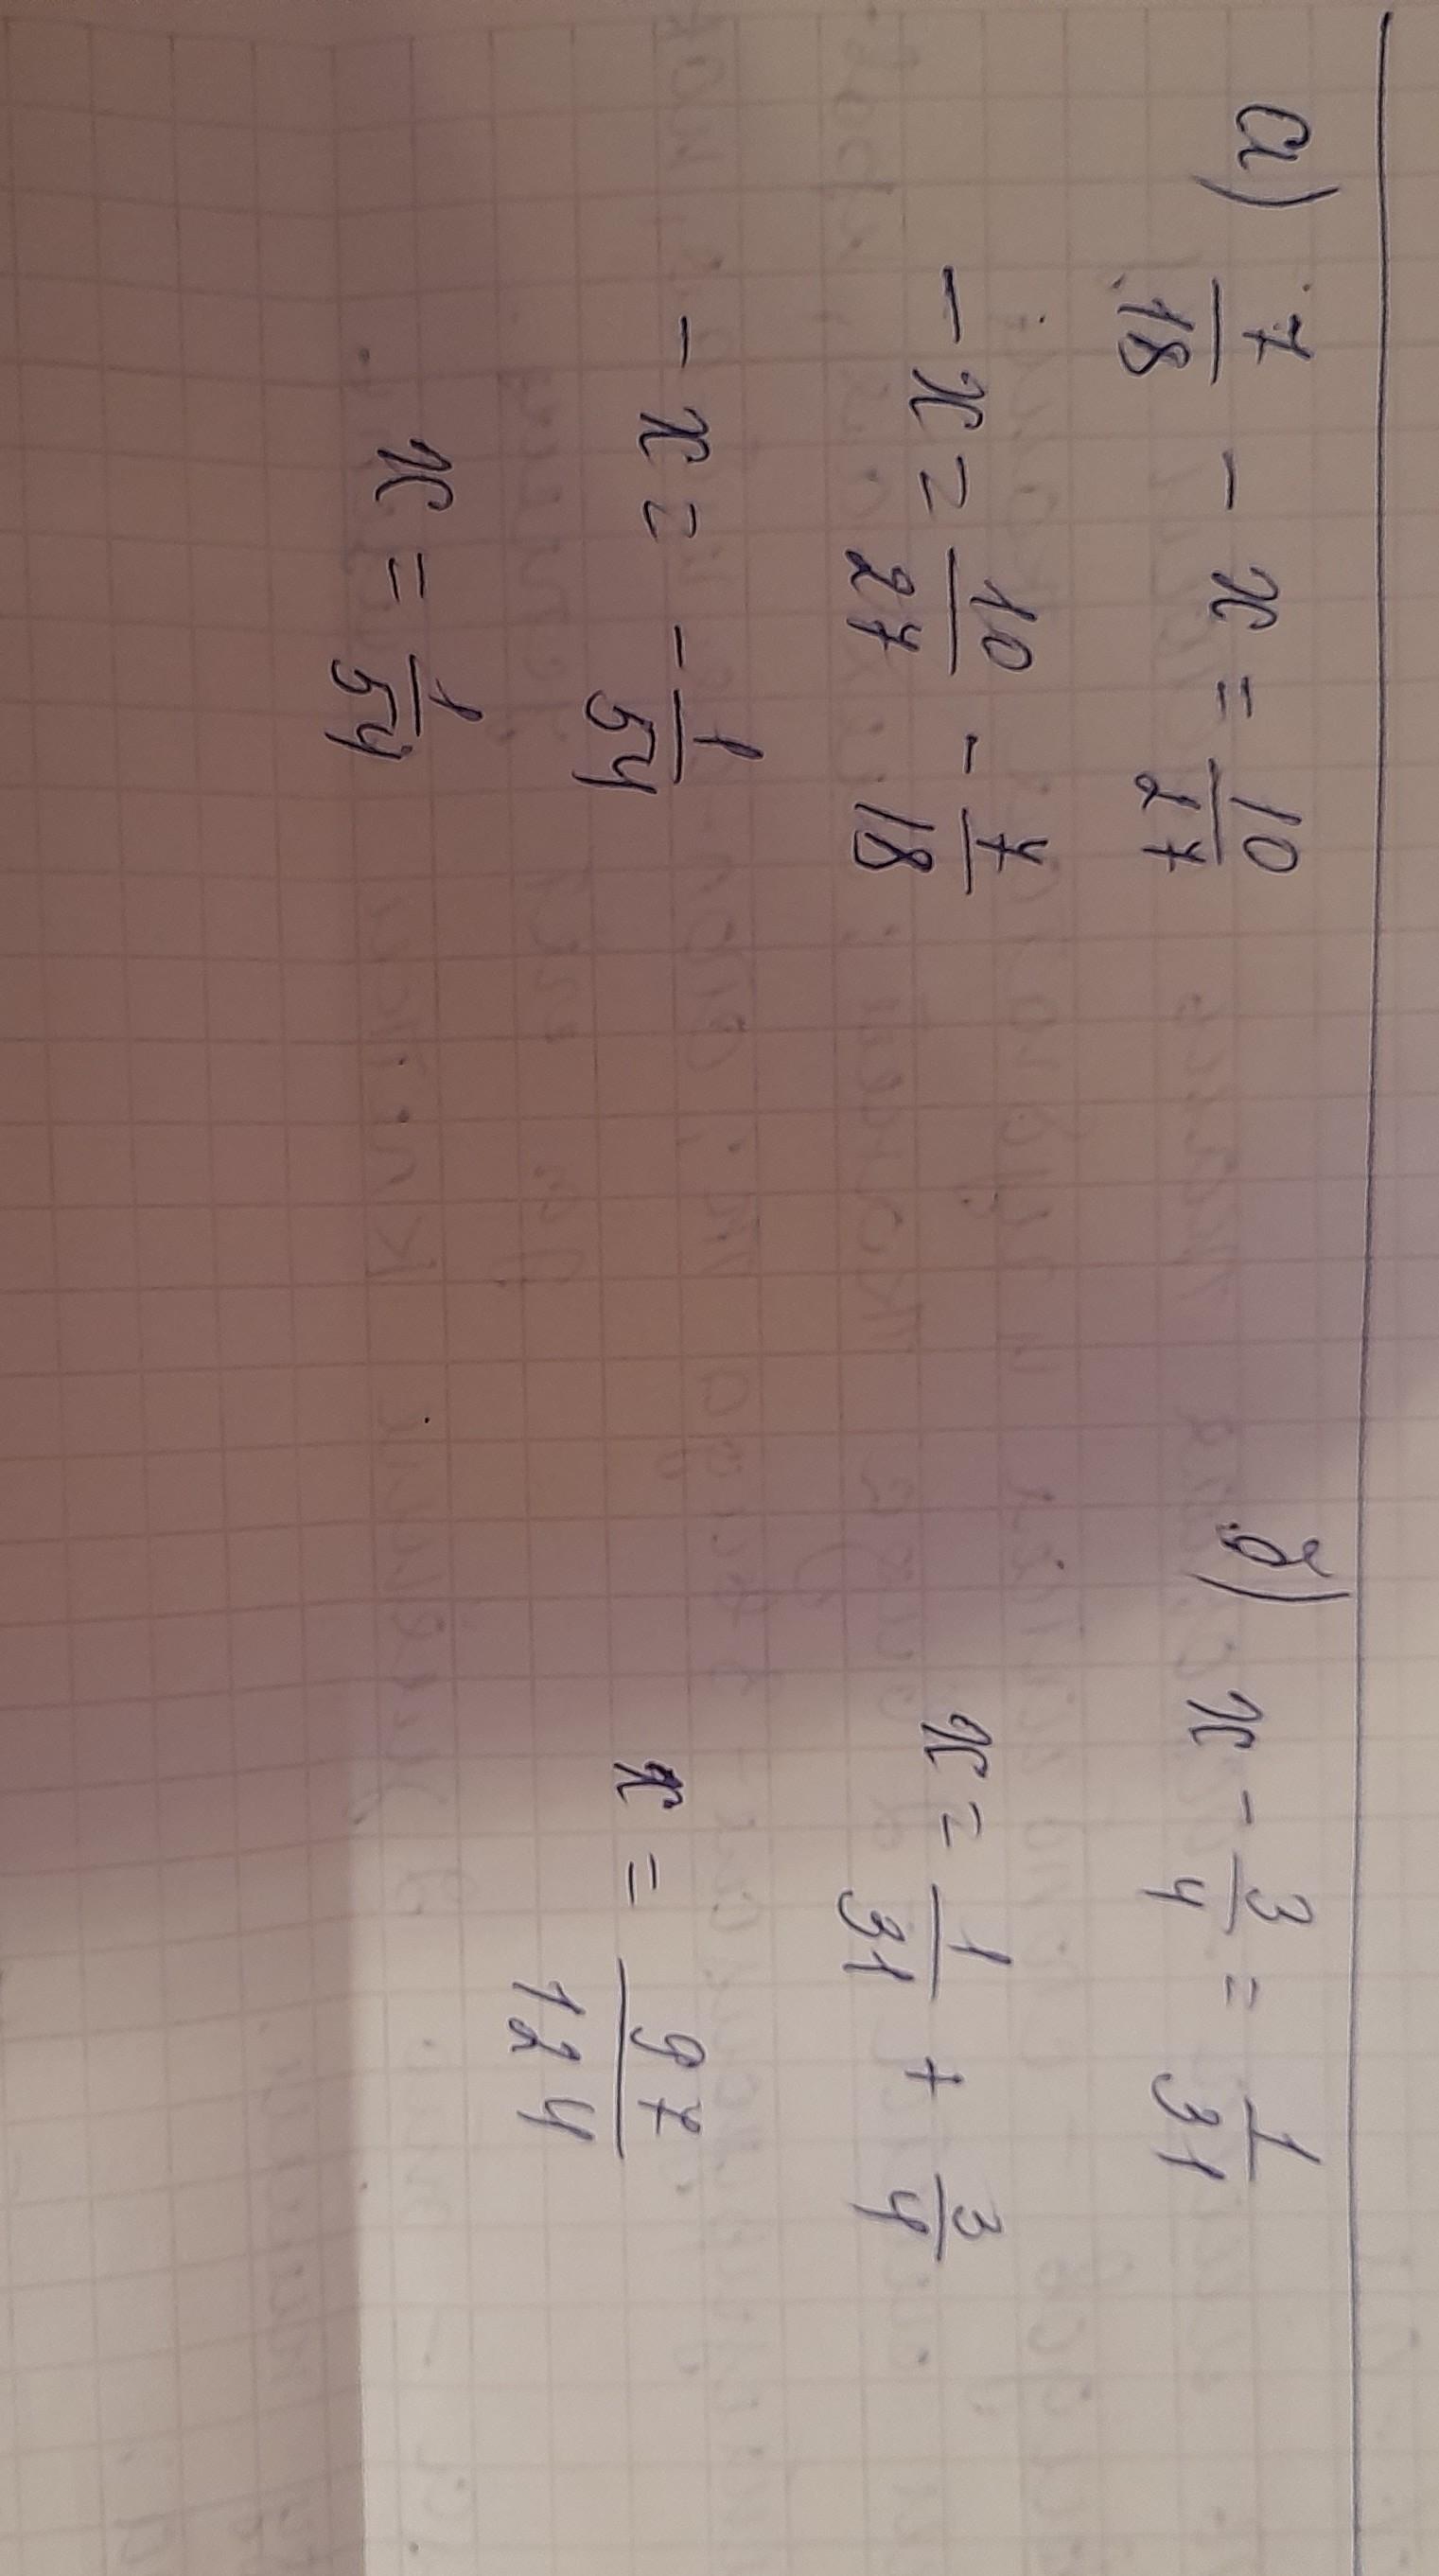 а) 7/18 - x = 10/27
- x = 10/27 - 7/18
- x = - 1/54
x = 1/54
б) x - 3/4 = 1/31
x = 1/31 + 3/4
x = 97/124